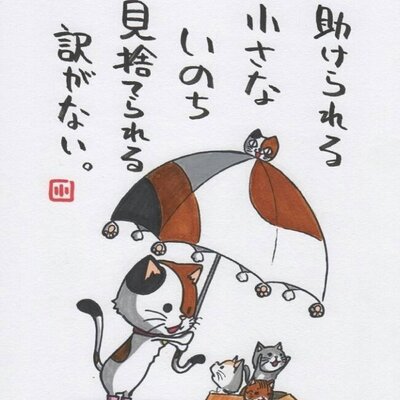 助けられる
小さな
いのち
見捨てられる
訳がない。
小